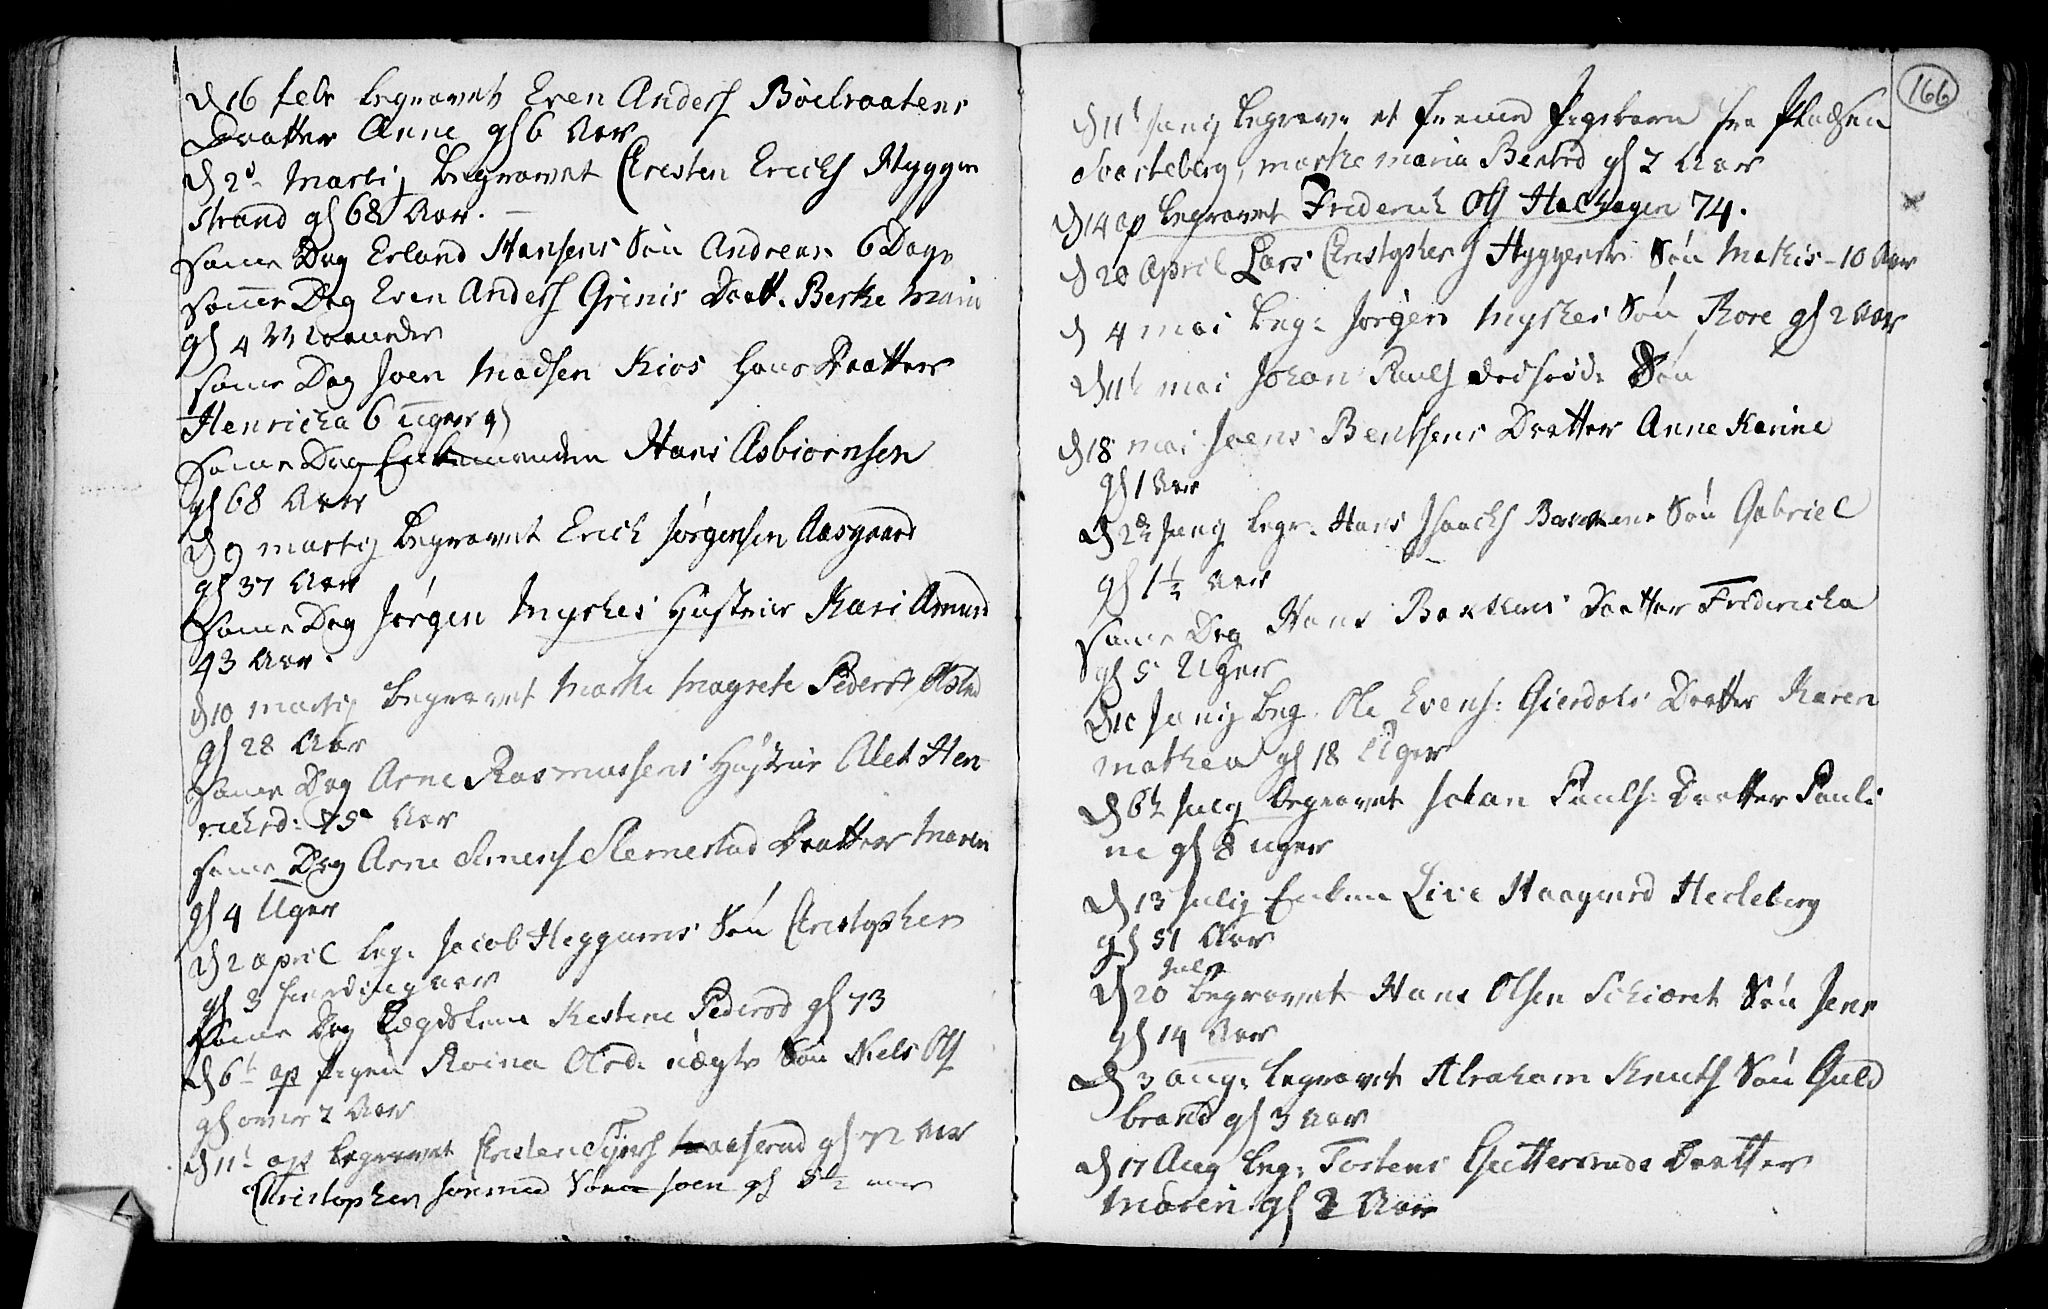 D 16 febr begravet Even Anders Böelraatens
Daatter Anne gl 6 Aar
D 2d Martij Begravet Christen Erichs Hyggen
Strand gl 68 Aar.
Samme Dag Erland Hansens Sön Andreas 6 Dage
Samme Dag Even Anders Grinis Daatt. Berthe Maria
gl 4 Maaneder
Samme Dag Joen Madsen Kios hans Daatter
Henricha 6 uger gl
Samme Dag Hans Asbiörnsen
gl 68 Aar
D 9 martij Begravet Erich Jörgensen Aasgaard
gl 37 Aar
Samme Dag Jörgen Myhres Hustrue Kari Amund
43 Aar.
D 10 martij begravet Marthe Magrete Pedersd
gl 28 Aar
Samme Dag Arne Rasmussens Hustrue Alet Hen
richsd: 75 Aar
Samme Dag Arne Simens Slemestad Daatter Maren
gl 4 Uger
D 2 april beg: Jacob Heggums Sön Christopher
gl 3 fierding aar
Samme Dag Lægdslem Kestine Pedersd gl 73
D 6t ap Pigen Roina Olsd. uægte Sön Niels Ols
gl over 2 Aar
D 11t ap begravet Christen gl 72 Aar
Christopher Sön Joen gl 5½ aar
166
D 11t Junij begrav: et fremmed Pigebarn fra Pladsen
Svarteberg, Marthe Maria Bentsd gl 2 Aar
D 14 ap begravet Friderich Ols Hachagen 74.
D 20 April Lars Christophers Hyggens Sön Mathis 10 Aar
D 4 mai beg: Jörgen Myhres Sön Thore gl 2 Aar
D 11t mai Johan Pauls dödföde Sön
D 18 mai Joens Bentsens Daatter Anne Karine
gl 1 Aar
D 2dn Junij begr. Hans Isaachs Sön Gabriel
gl 1½ Aar
Samme Dag Hans Bakkens Daatter Fridericha
gl 5 Uger
D 10 Junij beg. Ole Evens: Gierdals Daatter Karen
Mathea gl 18 Uger
D 6t July begravet Johan Pauls: Daatter Pauli
ne gl 8 uger
D 13 Julij Enken Live Haagensd Herleberg
gl 51 Aar
July
D 20 begravet Hans Olsen Schiæret Sön Jens
gl 14 Aar
D 3 aug: begravet Abraham Knuts Sön Guld
brand gl 3 Aar
D 17 Aug beg: Tostens Guttersruds Daatter
Maren gl 2 Aar